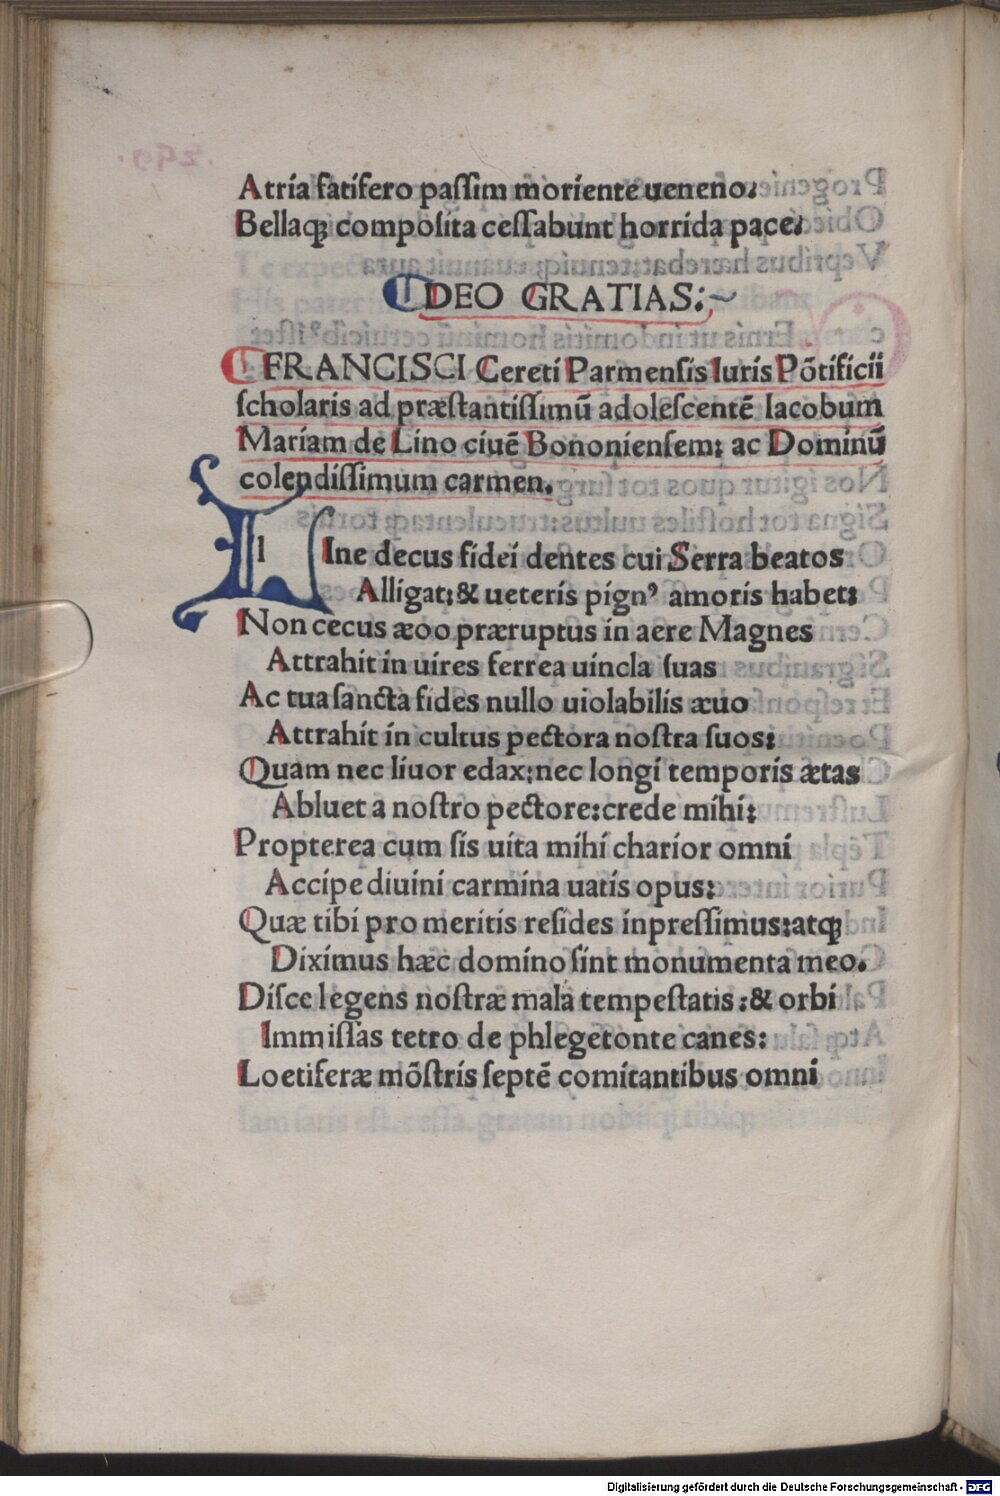 Atria fatifero paſſim moriente ueneno.
Bellaqꝫ compoſita ceſſabunt horrida pace.
DEO GRATIAS:~
FRANCISCI Cereti Parmenſis Iuris Põtificii
ſcholaris ad præſtantiſſimũ adoleſcentẽ Iacobum
Mariam de Lino ciuẽ Bononienſem: ac Dominũ
colendiſſimum carmen.
LIne decus fidei dentes cui Serra beatos
Alligat: & ueteris pignꝰ amoris habet:
Non cecus æoo præruptus in aere Magnes
Attrahit in uires ferrea uincla ſuas
Ac tua ſancta fides nullo uiolabilis æuo
Attrahit in cultus pectora noſtra ſuos:
Quam nec liuor edax: nec longi temporis ætas
Abluet a noſtro pectore: crede mihi:
Propterea cum ſis uita mihi charior omni
Accipe diuini carmina uatis opus:
Quæ tibi pro meritis reſides inpreſſimus: atqꝫ
Diximus hæc domino ſint monumenta meo.
Diſce legens noſtræ mala tempeſtatis: & orbi
Immiſſas tetro de phlegetonte canes:
Loetiferæ mõſtris ſeptẽ comitantibus omni
Digitalisierung gefördert durch die Deutsche Forschungsgemeinschaft - DFG